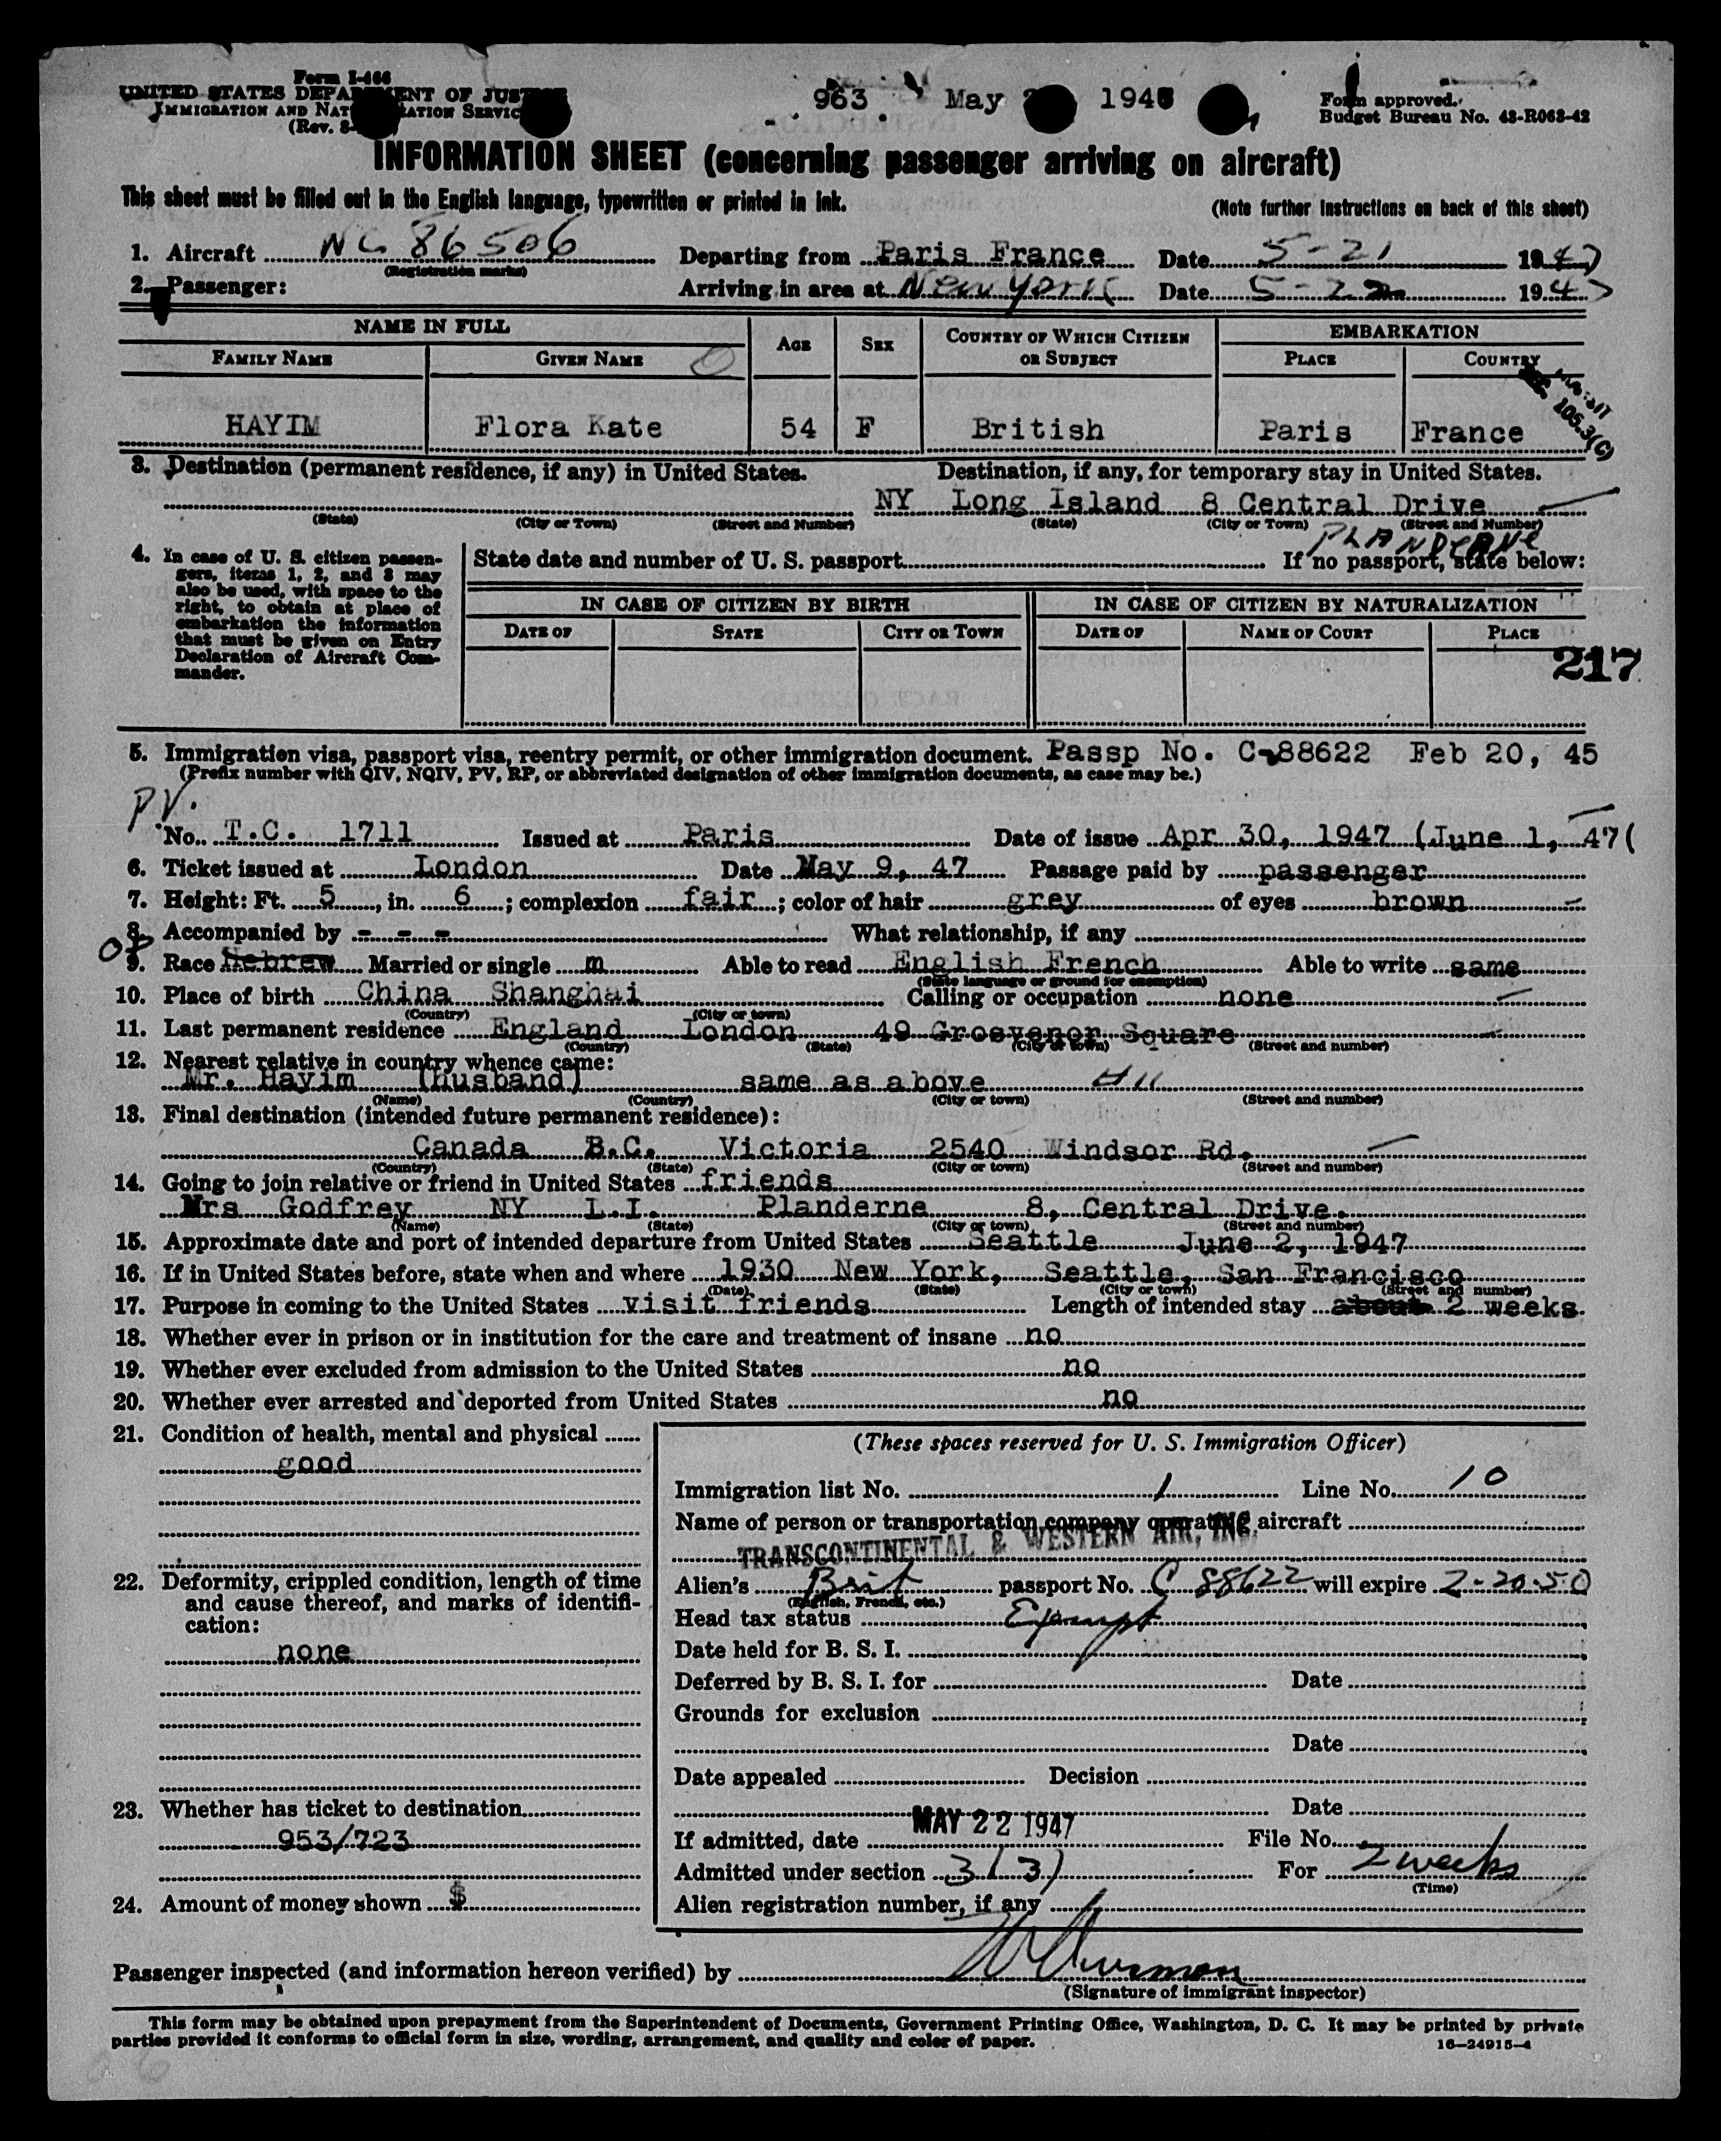 Form I-466
UNITED STATES DEPARTMENT OF JUSTICE
IMMIGRATION AND NATURALIZATION SERVICE
(Rev. 8-
963 May 194
Form approved.
Budget Bureau No. 43-R063-42
INFORMATION SHEET (concerning passenger arriving on aircraft)
This sheet must be filled out in the English language, typewritten or printed in ink.
(Note further instructions on back of this sheet)
1. Aircraft NC 86506 Departing from Paris France Date 5-21 1947
(Registration marks)
2. Passenger: Arriving in area at New York Date 5-22 1947
NAME IN FULL AGE SEX COUNTRY OF WHICH CITIZEN OR SUBJECT EMBARKATION
FAMILY NAME GIVEN NAME PLACE COUNTRY
105.3(C)
HAYIM Flora Kate 54 F British Paris France
3. Destination (permanent residence, if any) in United States. Destination, if any, for temporary stay in United States.
NY Long Island 8 Central Drive
(State) (City or Town) (Street and Number) (State) (City or Town) (Street and Number)
PLANDERNE
4. In case of U. S. citizen passen-
gers, items 1, 2, and 3 may
also be used, with space to the
right, to obtain at place of
embarkation the information
that must be given on Entry
Declaration of Aircraft Com-
mander.
State date and number of U. S. passport If no passport, state below:
IN CASE OF CITIZEN BY BIRTH IN CASE OF CITIZEN BY NATURALIZATION
DATE OF STATE CITY OR TOWN DATE OF NAME OF COURT PLACE
217
5. Immigration visa, passport visa, reentry permit, or other immigration document. Passp No. C-88622 Feb 20, 45
(Prefix number with QIV, NQIV, PV, RP, or abbreviated designation of other immigration documents, as case may be.)
PV.
No. T.C. 1711 Issued at Paris Date of issue Apr 30, 1947 (June 1, 47(
6. Ticket issued at London Date May 9, 47 Passage paid by passenger
7. Height: Ft. 5, in. 6; complexion fair; color of hair grey of eyes brown
8. Accompanied by - - - What relationship, if any
9. Race Hebrew Married or single m Able to read English French Able to write same
(State language or ground for exemption)
10. Place of birth China Shanghai Calling or occupation none
(Country) (City or town)
11. Last permanent residence England London 49 Grosvenor Square
(Country) (State) (City or town) (Street and number)
12. Nearest relative in country whence came:
Mr. Hayim (husband) same as above
(Name) (Country) (City or town) (Street and number)
13. Final destination (intended future permanent residence):
Canada B.C. Victoria 2540 Windsor Rd.
(Country) (State) (City or town) (Street and number)
14. Going to join relative or friend in United States friends
Mrs Godfrey NY L.I. Planderne 8, Central Drive.
(Name) (State) (City or town) (Street and number)
15. Approximate date and port of intended departure from United States Seattle June 2, 1947
16. If in United States before, state when and where 1930 New York, Seattle, San Francisco
(Date) (State) (City or town) (Street and number)
17. Purpose in coming to the United States visit friends Length of intended stay about 2 weeks.
18. Whether ever in prison or in institution for the care and treatment of insane no
19. Whether ever excluded from admission to the United States no
20. Whether ever arrested and deported from United States no
21. Condition of health, mental and physical
good
22. Deformity, crippled condition, length of time
and cause thereof, and marks of identifi-
cation:
none
23. Whether has ticket to destination
953/723
24. Amount of money shown $
(These spaces reserved for U. S. Immigration Officer)
Immigration list No. 1 Line No. 10
Name of person or transportation company operating aircraft
TRANSCONTINENTAL & WESTERN AIR, INC.
Alien's Brit passport No. C 88622 will expire 2-20-50
(English, French, etc.)
Head tax status Exempt
Date held for B. S. I.
Deferred by B. S. I. for Date
Grounds for exclusion
Date
Date appealed Decision
Date
If admitted, date MAY 22 1947 File No.
Admitted under section 3(3) For 2 weeks
(Time)
Alien registration number, if any
Passenger inspected (and information hereon verified) by
(Signature of immigrant inspector)
This form may be obtained upon prepayment from the Superintendent of Documents, Government Printing Office, Washington, D. C. It may be printed by private
parties provided it conforms to official form in size, wording, arrangement, and quality and color of paper.
16—24915-4